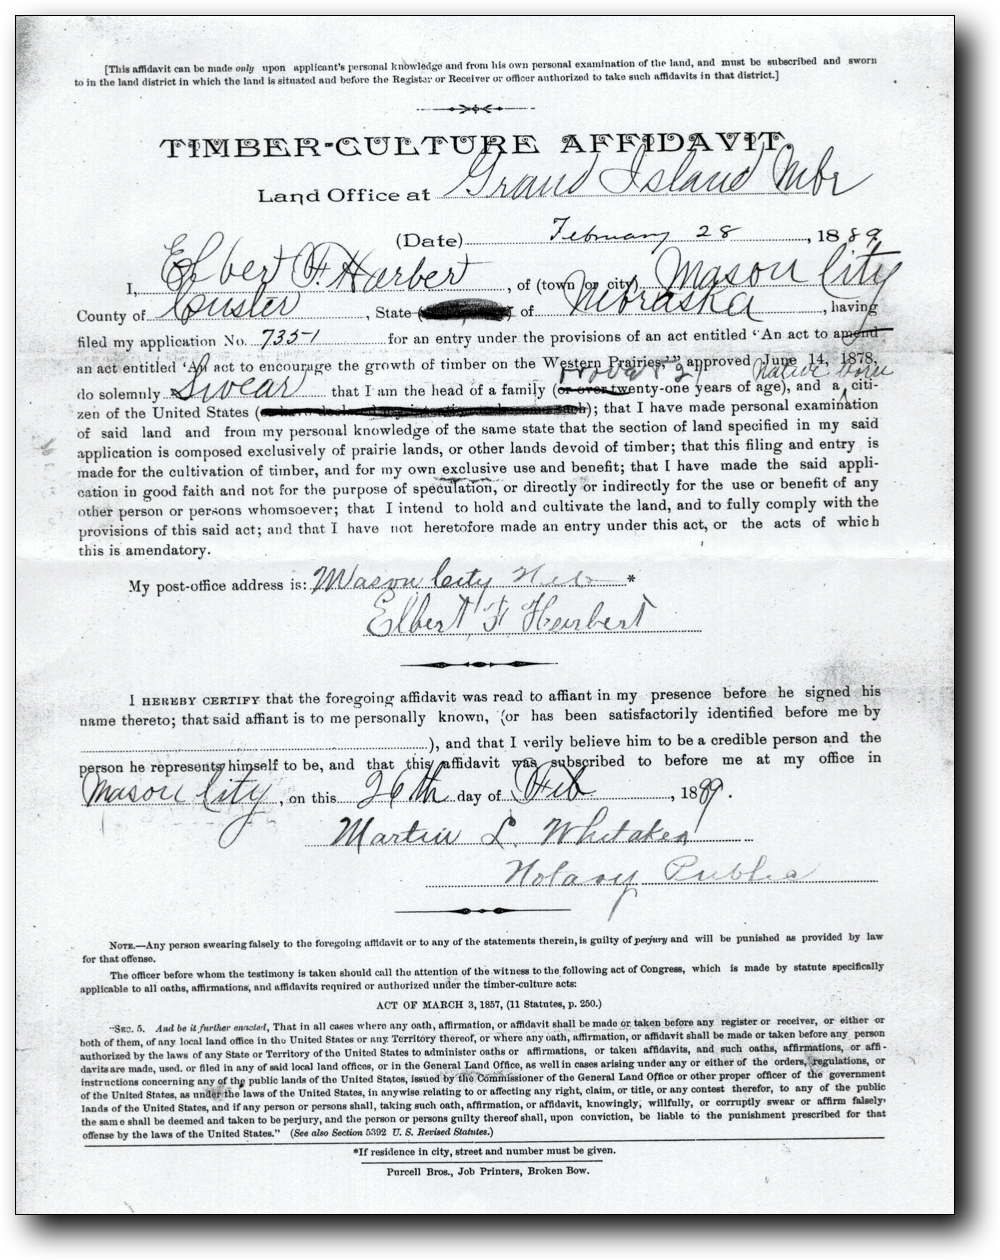 [This affidavit can be made only upon applicant's personal knowledge and from his own personal examination of the land, and must be subscribed and sworn
to in the land district in which the land is situated and before the Register or Receiver or officer authorized to take such affidavits in that district.]
TIMBER-CULTURE AFFIDAVIT.
Land Office at Grand Island Nbr
(Date) February 28, 1889
I, Elbert F. Harbert, of (town or city) Mason City
County of Custer, State of Nebraska, having
filed my application No. 7351 for an entry under the provisions of an act entitled "An act to amend
an act entitled 'An act to encourage the growth of timber on the Western Prairies,'" approved June 14, 1878,
over 21 Native born
do solemnly Swear that I am the head of a family (or over twenty-one years of age), and a citi-
zen of the United States ( ); that I have made personal examination
of said land and from my personal knowledge of the same state that the section of land specified in my said
application is composed exclusively of prairie lands, or other lands devoid of timber; that this filing and entry is
made for the cultivation of timber, and for my own exclusive use and benefit; that I have made the said appli-
cation in good faith and not for the purpose of speculation, or directly or indirectly for the use or benefit of any
other person or persons whomsoever; that I intend to hold and cultivate the land, and to fully comply with the
provisions of this said act; and that I have not heretofore made an entry under this act, or the acts of which
this is amendatory.
My post-office address is: Mason City Neb *
Elbert F Harbert
I HEREBY CERTIFY that the foregoing affidavit was read to affiant in my presence before he signed his
name thereto; that said affiant is to me personally known, (or has been satisfactorily identified before me by
), and that I verily believe him to be a credible person and the
person he represents himself to be, and that this affidavit was subscribed to before me at my office in
Mason City, on this 26th day of Feb, 1889.
Martin L. Whitaker
Notary Public
NOTE.—Any person swearing falsely to the foregoing affidavit or to any of the statements therein, is guilty of perjury and will be punished as provided by law
for that offense.
The officer before whom the testimony is taken should call the attention of the witness to the following act of Congress, which is made by statute specifically
applicable to all oaths, affirmations, and affidavits required or authorized under the timber-culture acts:
ACT OF MARCH 3, 1857, (11 Statutes, p. 250.)
"SEC. 5. And be it further enacted, That in all cases where any oath, affirmation, or affidavit shall be made or taken before any register or receiver, or either or
both of them, of any local land office in the United States or any Territory thereof, or where any oath, affirmation, or affidavit shall be made or taken before any person
authorized by the laws of any State or Territory of the United States to administer oaths or affirmations, or taken affidavits, and such oaths, affirmations, or affi-
davits are made, used, or filed in any of said local land offices, or in the General Land Office, as well in cases arising under any or either of the orders, regulations, or
instructions concerning any of the public lands of the United States, issued by the Commissioner of the General Land Office or other proper officer of the government
of the United States, as under the laws of the United States, in anywise relating to or affecting any right, claim, or title, or any contest therefor, to any of the public
lands of the United States, and if any person or persons shall, taking such oath, affirmation, or affidavit, knowingly, willfully, or corruptly swear or affirm falsely,
the same shall be deemed and taken to be perjury, and the person or persons guilty thereof shall, upon conviction, be liable to the punishment prescribed for that
offense by the laws of the United States." (See also Section 5392 U. S. Revised Statutes.)
*If residence in city, street and number must be given.
Purcell Bros., Job Printers, Broken Bow.